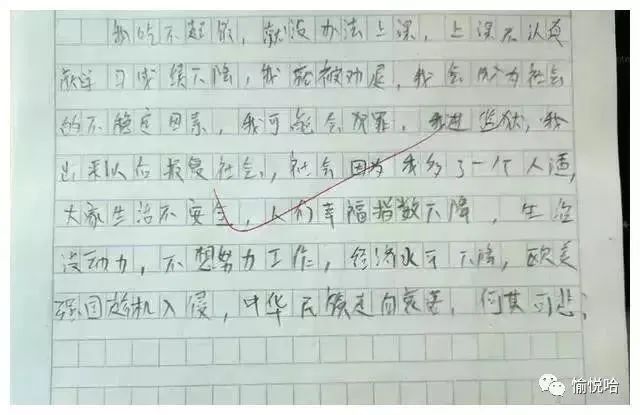 我吃不起饭，就没办法上课，上课不认真
就学习成绩下降，我就被劝退，我会成为社会
的不稳定因素，我可能会犯罪，我进监狱，我
出来以后报复社会，社会因为我多了一个人渣，
大家生活不安全，人们幸福指数下降，生活
没动力，不想努力工作，经济水平下降，欧美
强国趁机入侵，中华民族走向衰落，何其可悲；
愉悦哈